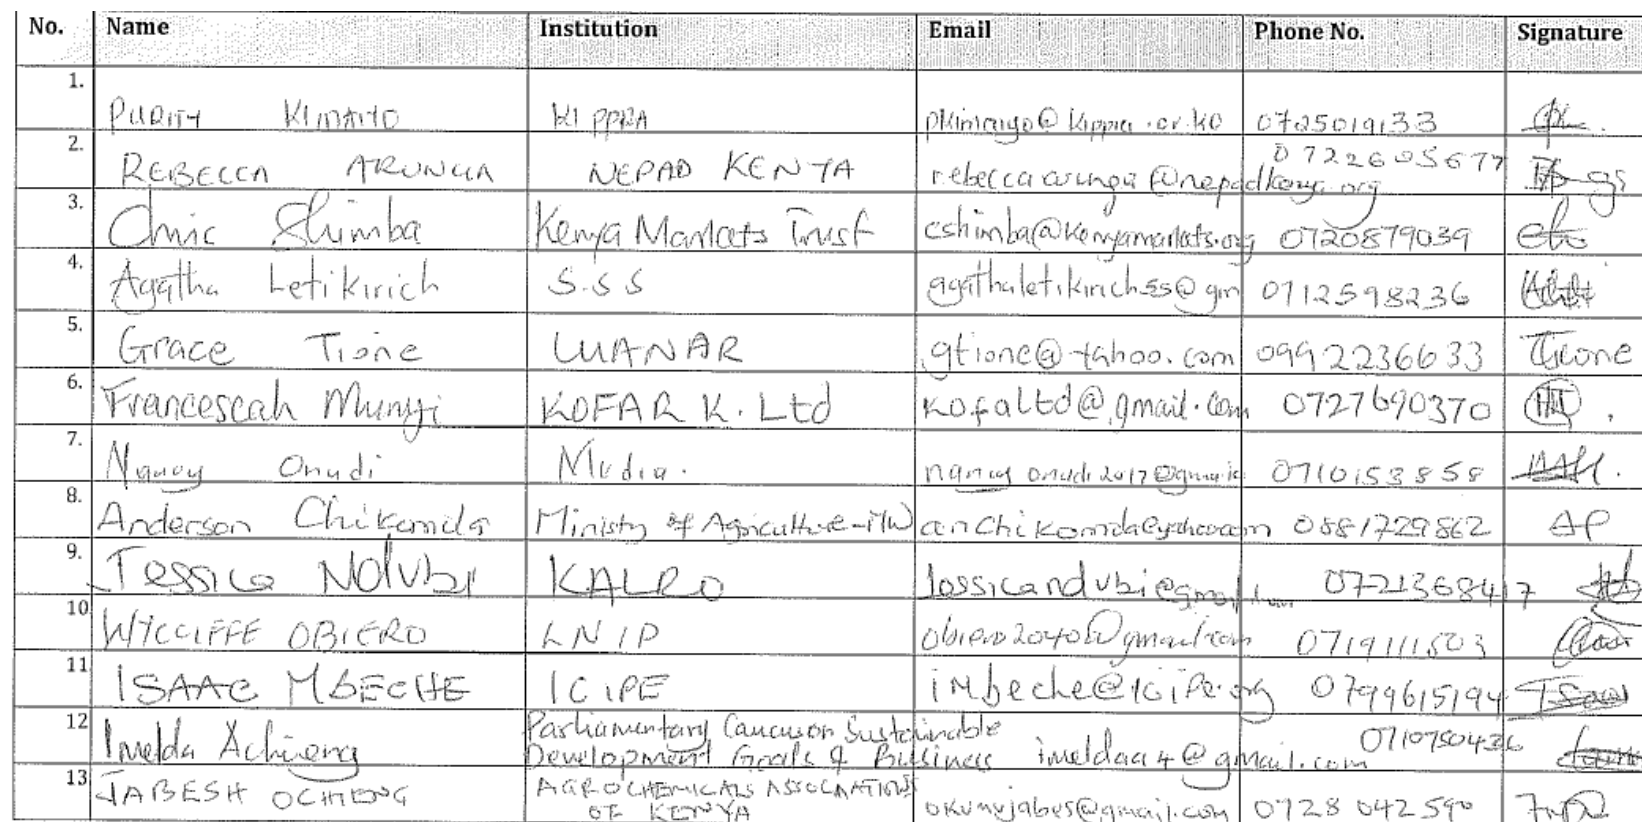 No. Name Institution Email Phone No. Signature
1. PURITY KIMAIYO KIPPRA pkimaiyo@kippra.or.ke 0725019133
2. REBECCA ARUNGA NEPAD KENYA rebecca.arunga@nepadkenya.org 0722605677
3. Shimba Kenya Markets Trust cshimba@kenyamarkets.org 0720879039
4. Agatha Letikirich S.S.S agathaletikirich55@gm 0712598236
5. Grace Tione LUANAR gtione@yahoo.com 0992236633 Tione
6. Francescah Munyi KOFAR K. Ltd kofaltd@gmail.com 0727690370
7. Nancy Onudi Media. 0710153858
8. Anderson Chikomola Ministry of Agriculture-MW 0881729862 AP
9. Jessica Ndubi KALRO jessicandubi@gmail.com 0721368417
10 WYCCIFFE OBIERO obiero2040@gmail.com 0719111503
11 ISAAC MBECHE ICIPE imbeche@icipe.org 0799615194
12 Imelda Achieng Parliamentary Caucus on Sustainable
Development Goals & Business imeldaa4@gmail.com 0710750436
13 JABESH OCHIENG AGROCHEMICALS ASSOCIATION
OF KENYA okumujabes@gmail.com 0728 042 590